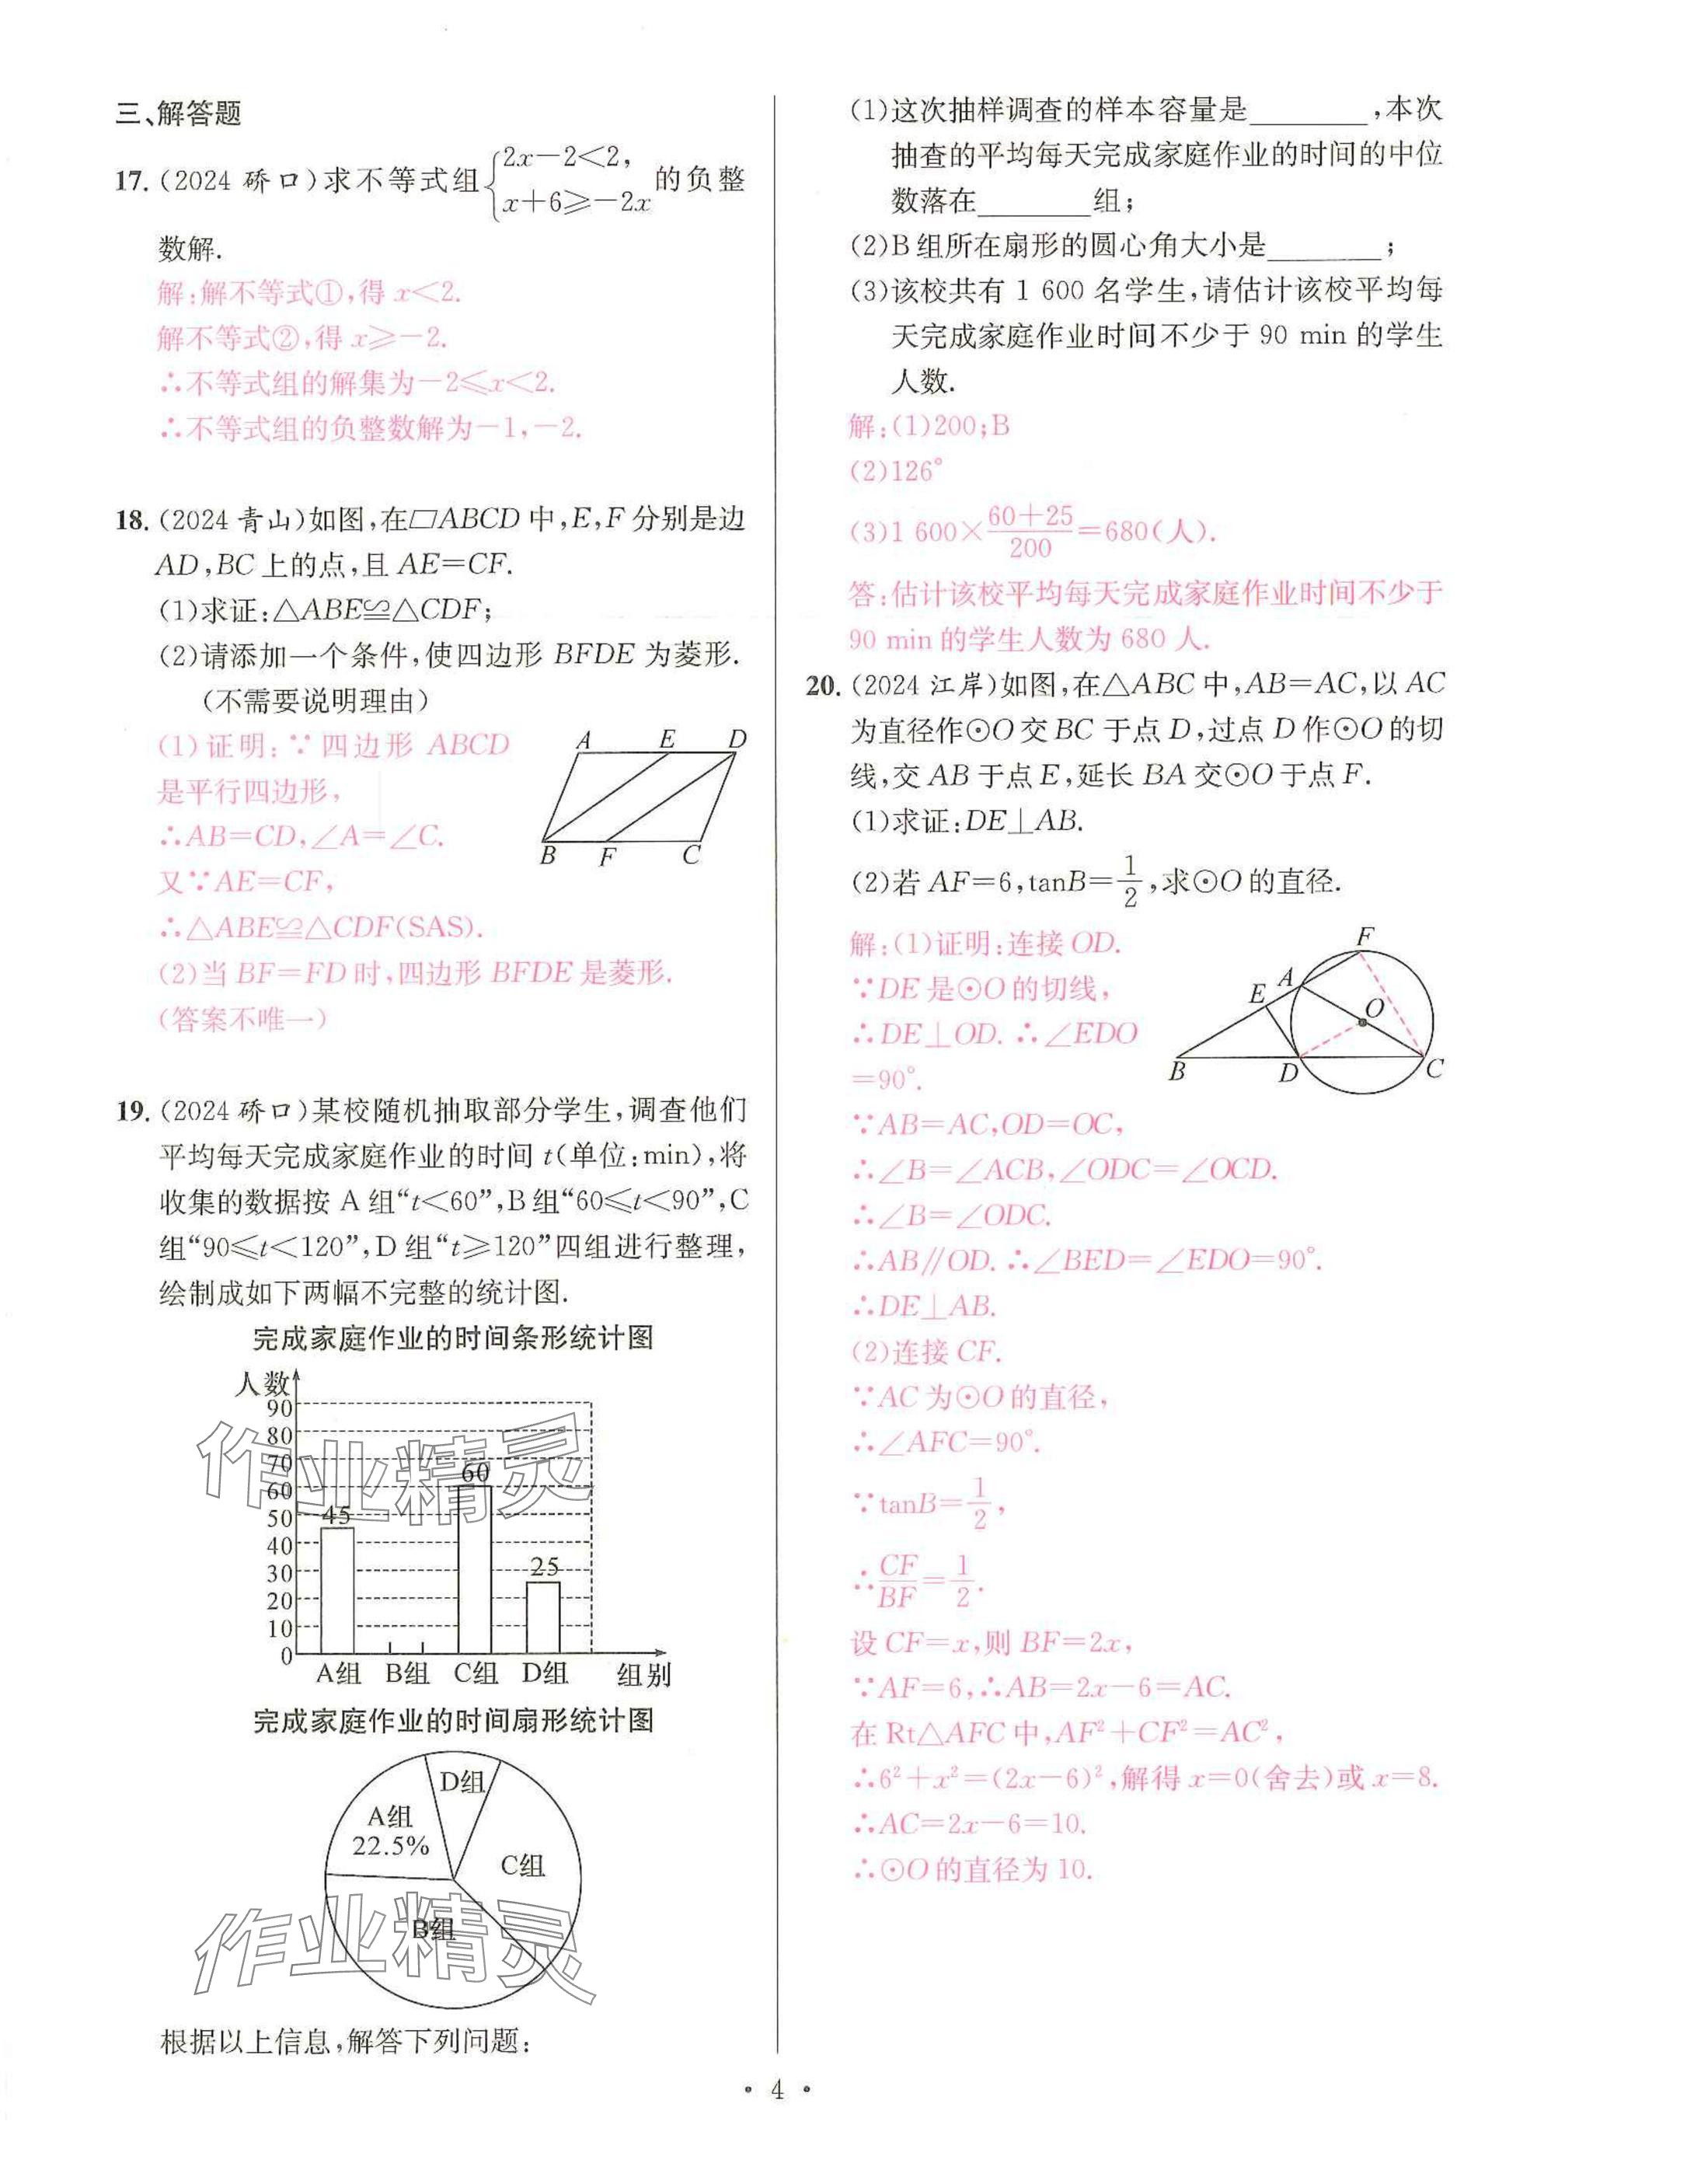 三、解答题
17. (2024 硚口)求不等式组{2x－2＜2, x＋6≥－2x 的负整
数解.
解:解不等式①,得 x＜2.
解不等式②,得 x≥－2.
∴不等式组的解集为－2≤x＜2.
∴不等式组的负整数解为－1,－2.
18. (2024 青山)如图,在▱ABCD 中,E,F 分别是边
AD,BC 上的点,且 AE=CF.
(1)求证:△ABE≌△CDF;
(2)请添加一个条件,使四边形 BFDE 为菱形.
(不需要说明理由)
(1)证明:∵四边形 ABCD
是平行四边形,
∴AB=CD,∠A=∠C.
又∵AE=CF,
∴△ABE≌△CDF(SAS).
(2)当 BF=FD 时,四边形 BFDE 是菱形.
(答案不唯一)
A E D
B F C
19. (2024 硚口)某校随机抽取部分学生,调查他们
平均每天完成家庭作业的时间 t(单位:min),将
收集的数据按 A 组“t＜60”,B 组“60≤t＜90”,C
组“90≤t＜120”,D 组“t≥120”四组进行整理,
绘制成如下两幅不完整的统计图.
完成家庭作业的时间条形统计图
人数
90
80
70
60
50
40
30
20
10
0
45
60
25
A组 B组 C组 D组 组别
作业精灵
完成家庭作业的时间扇形统计图
D组
A组
22.5%
C组
B组
作业精灵
根据以上信息,解答下列问题:
(1)这次抽样调查的样本容量是________,本次
抽查的平均每天完成家庭作业的时间的中位
数落在________组;
(2)B 组所在扇形的圆心角大小是________;
(3)该校共有 1 600 名学生,请估计该校平均每
天完成家庭作业时间不少于 90 min 的学生
人数.
解:(1)200;B
(2)126°
(3)1 600×(60+25)/200=680(人).
答:估计该校平均每天完成家庭作业时间不少于
90 min 的学生人数为 680 人.
20. (2024 江岸)如图,在△ABC 中,AB=AC,以 AC
为直径作⊙O 交 BC 于点 D,过点 D 作⊙O 的切
线,交 AB 于点 E,延长 BA 交⊙O 于点 F.
(1)求证:DE⊥AB.
(2)若 AF=6,tanB=1/2,求⊙O 的直径.
解:(1)证明:连接 OD.
∵DE 是⊙O 的切线,
∴DE⊥OD. ∴∠EDO
=90°.
F
A
E
O
B D C
∵AB=AC,OD=OC,
∴∠B=∠ACB,∠ODC=∠OCD.
∴∠B=∠ODC.
∴AB∥OD. ∴∠BED=∠EDO=90°.
∴DE⊥AB.
(2)连接 CF.
∵AC 为⊙O 的直径,
∴∠AFC=90°.
∵tanB=1/2,
∴CF/BF=1/2.
设 CF=x,则 BF=2x,
∵AF=6,∴AB=2x－6=AC.
在 Rt△AFC 中,AF²+CF²=AC²,
∴6²+x²=(2x－6)²,解得 x=0(舍去)或 x=8.
∴AC=2x－6=10.
∴⊙O 的直径为 10.
· 4 ·